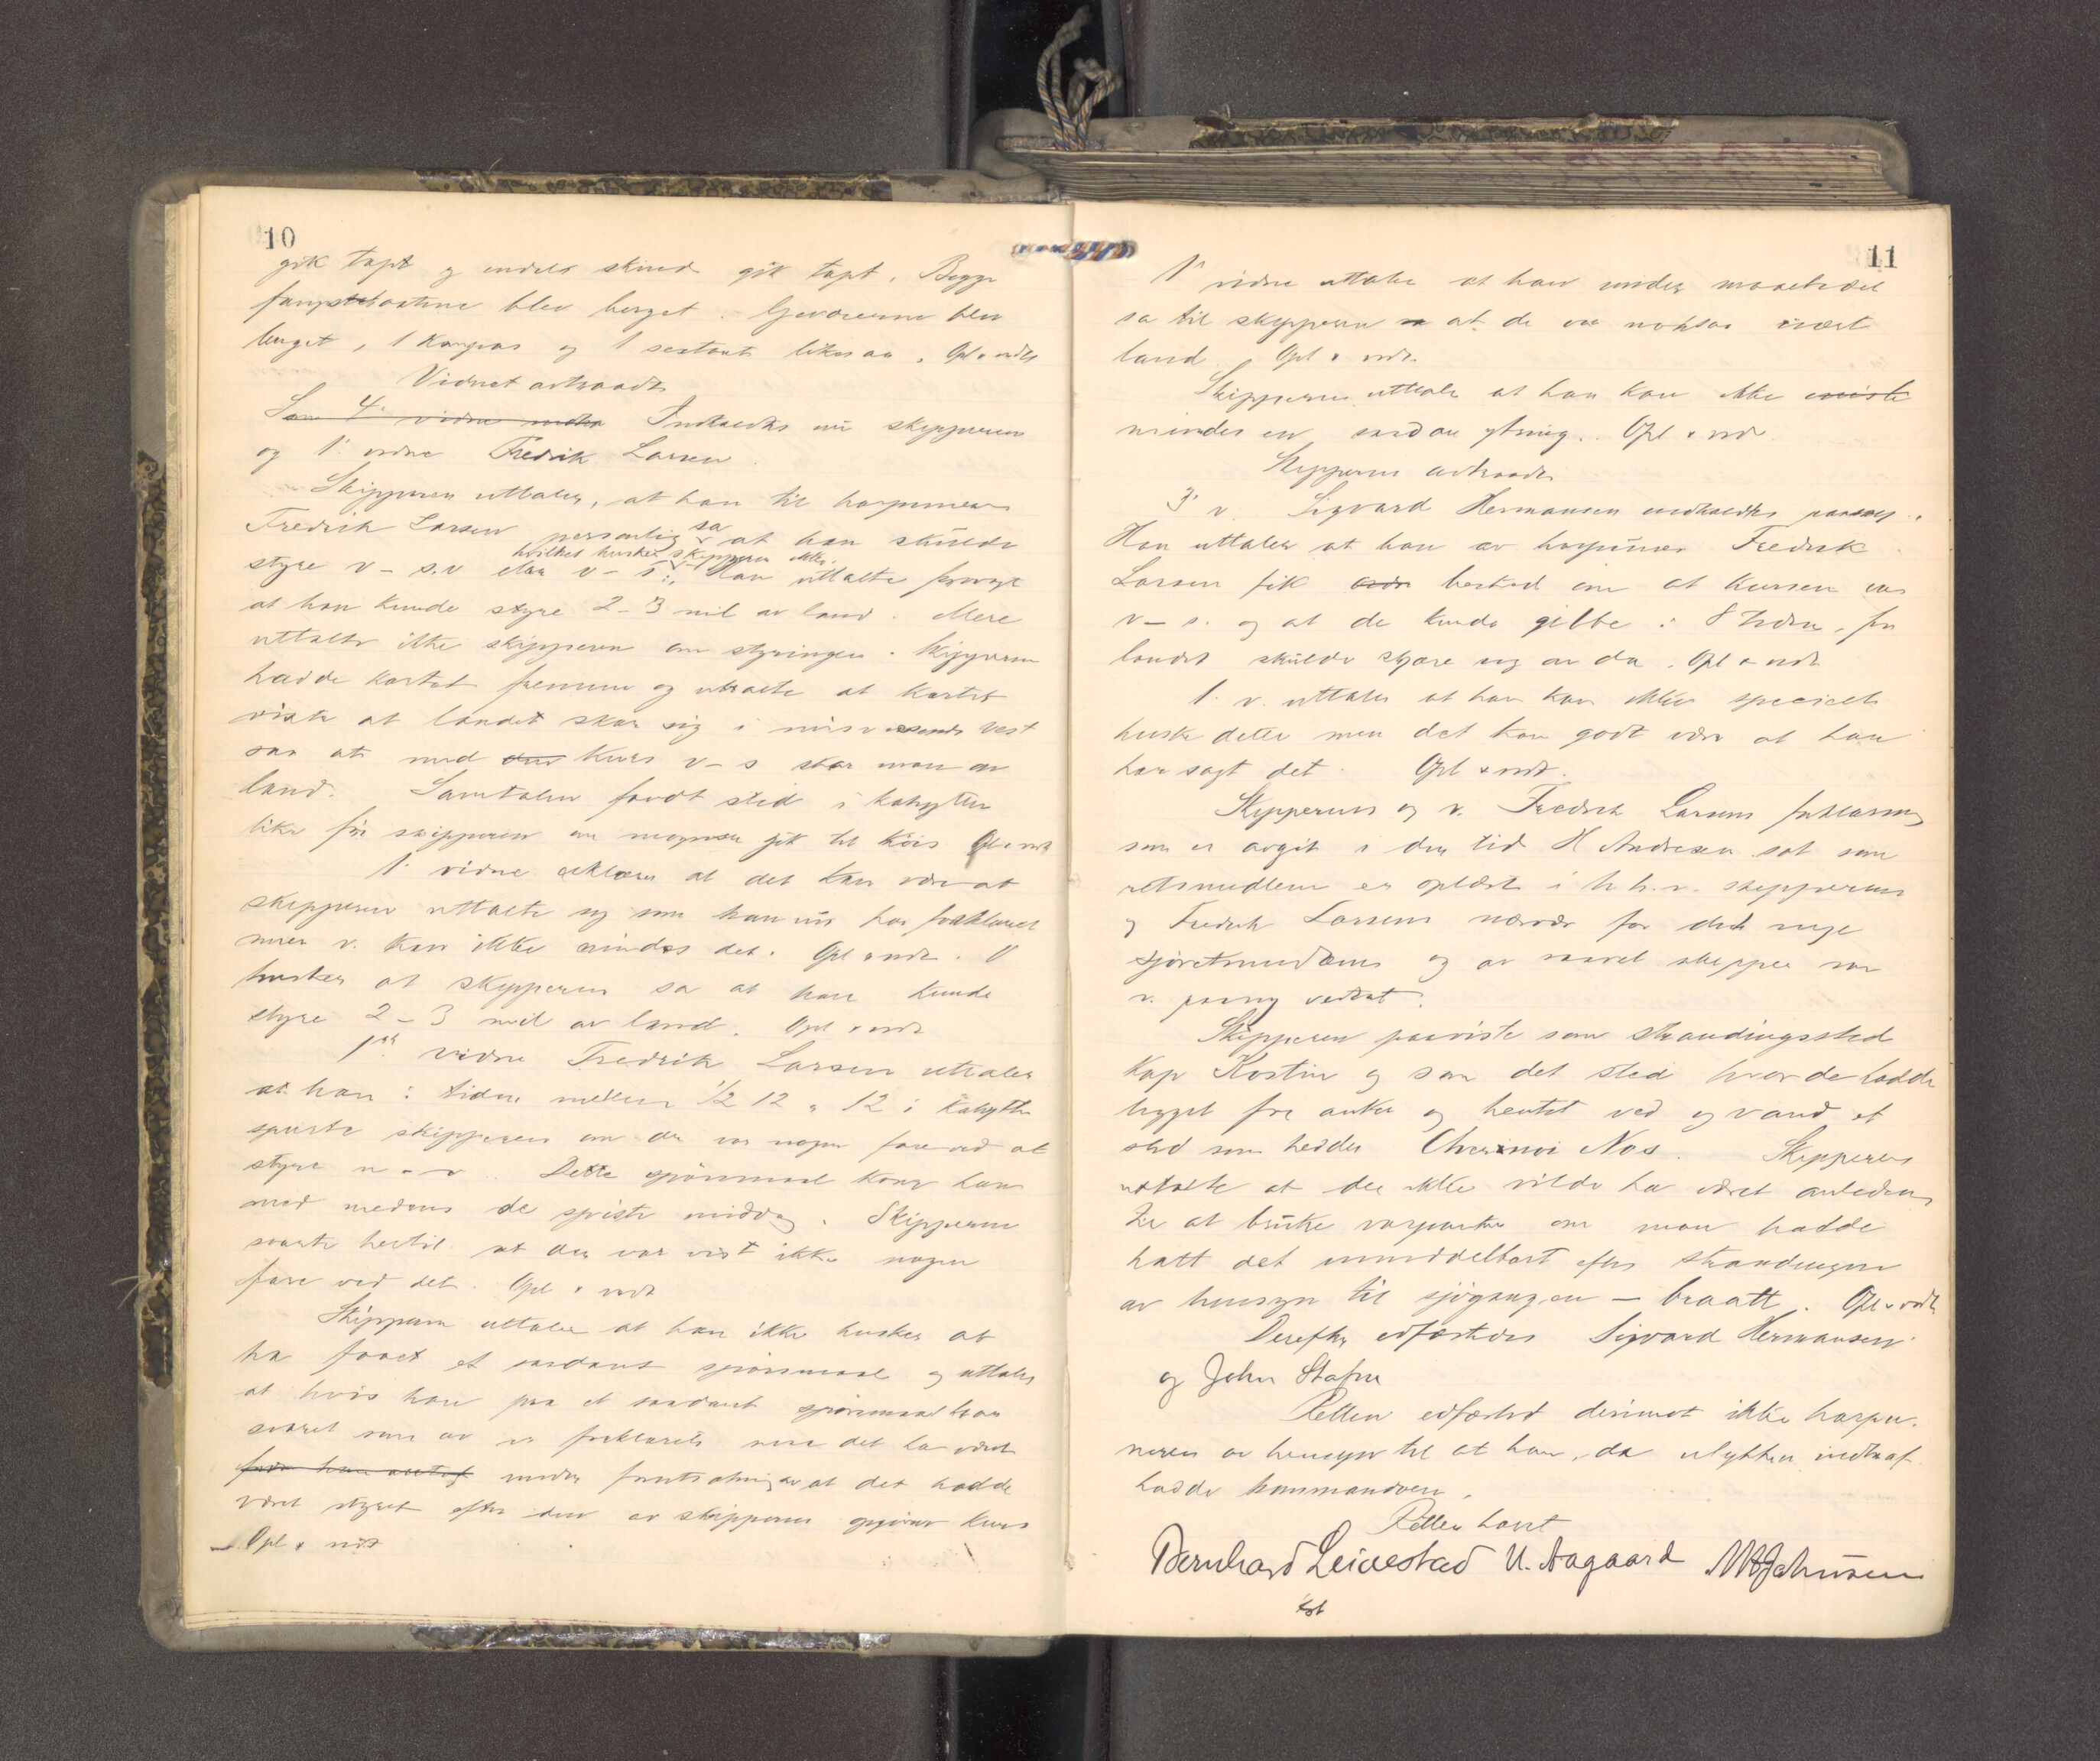 10
gik tapt og endels skind gik tapt. Begge
fangstbaatene blev berget. Geværerne blev
berget, 1 kompas og 1 sextant likesaa. Opl & vedt
Vidnet avtraadt
Som 4' vidne Indkaldtes nu skipperen
og 1' vidne Fredrik Larsen.
Skipperen uttaler, at han til harpuneren
Fredrik Larsen personlig sa at han skulde
hvilket husker skipperen ikke.
styre v - s.v eller v - s. Han uttalte forøvrigt
at han kunde styre 2-3 mil av land. Mere
uttalte ikke skipperen om styringen. Skipperen
hadde kartet fremme og uttalte at kartet
viste at landet skar sig i misvisende vest
saa at med den kurs v - s skar man av
land. Samtalen fandt sted i kahytten
like før skipperen om morgenen gik til køis Opl & vedt
1' vidne erklærer at det kan være at
skipperen uttalte sig som han nu har forklaret
men v. kan ikke mindes det. Opl & vedt. V
husker at skipperen sa at han kunde
styre 2-3 mil av land. Opl & vedt
1ste vidne Fredrik Larsen uttaler
at han i tiden mellem 1/2 12 & 12 i kahytten
spurte skipperen om der var nogen fare ved at
styre n - v. Dette spörsmaal kom han
med medens de spiste middag. Skipperen
svarte hertil at der var vist ikke nogen
fare ved det. Opl & vedt
Skipperen uttaler at han ikke husker at
ha faaet et saadant spörsmaal og uttaler
at hvis han paa et saadant spörsmaal har
svaret som av v. forklaret maa det ha været
under forutsætning av at det hadde
været styret efter den av skipperen opgivne kurs
- Opl & vedt
11
1' vidne uttaler at han under maaltidet
sa til skipperen at de var noksaa nært
land. Opl & vedt.
Skipperen uttaler at han kan ikke
mindes en saadan ytring. Opl & vedt.
Skipperen avtraadt
3' v. Sigvard Hermansen indkaldtes paany.
Han uttaler at han av harpuner Fredrik
Larsen fik beskad om at kursen var
v - s. og at de kunde gibbe i 8 tiden, for
landet skulde skjære sig av da. Opl & vedt
1. v. uttaler at han kan ikke specielt
huske dette men det kan godt være at han
har sagt det. Opl & vedt.
Skipperens og v. Fredrik Larsens forklaring
som er avgit i den tid H Andresen sat som
retsmedlem er oplæst i h.h.v. skipperens
og Fredrik Larsens nærvær for det nye
sjøretsmedlem og av saavel skipper som
v. paany vedtat.
Skipperen paaviste som strandingssted
Kap Kostin og som det sted hvor de hadde
ligget for anker og hentet ved og vand et
sted som hedder Chernoi Nos. Skipperen
uttalte at der ikke vilde ha været anledning
til at bruke varpanker om man hadde
hatt det umiddelbart efter strandingen
av hensyn til sjøgangen - braatt. Opl & vedt.
Derefter edfæstedes Sigvard Hermansen
og John Stafne
Retten edfæsted derimot ikke harpu-
neren av hensyn til at han, da ulykken indtraf
hadde kommandoen.
Retten hævet
Bernhard Leivestad U. Aagaard MHJohnsen
kst